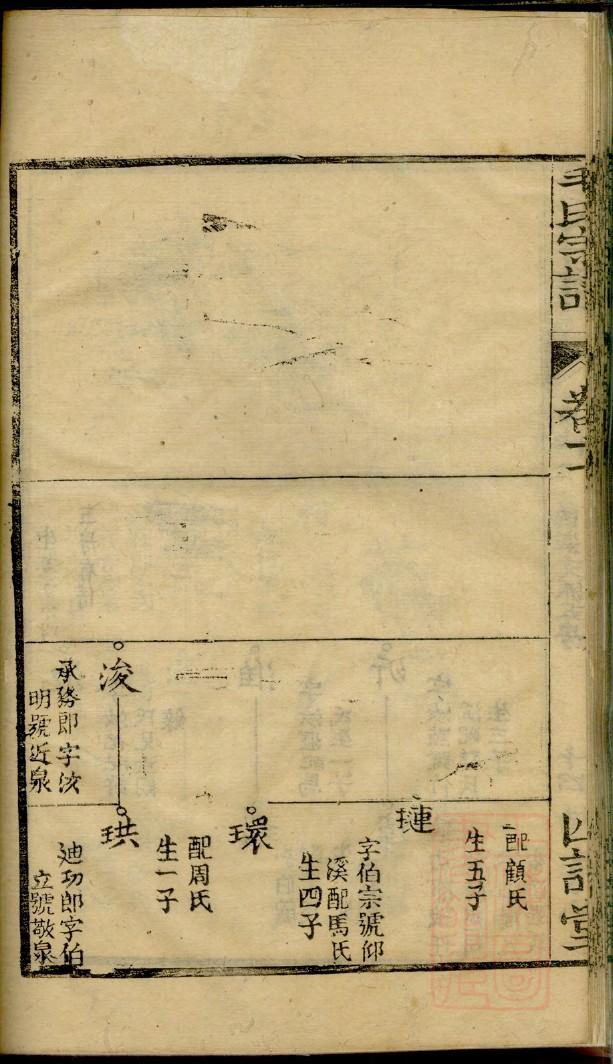 毛氏宗譜
卷二
配顧氏
生五子
璉
字伯宗號仰
溪配馬氏
生四子
環
配周氏
生一子
浚
承務郎字汝
明號近泉
珙
迪功郎字伯
立號敬泉